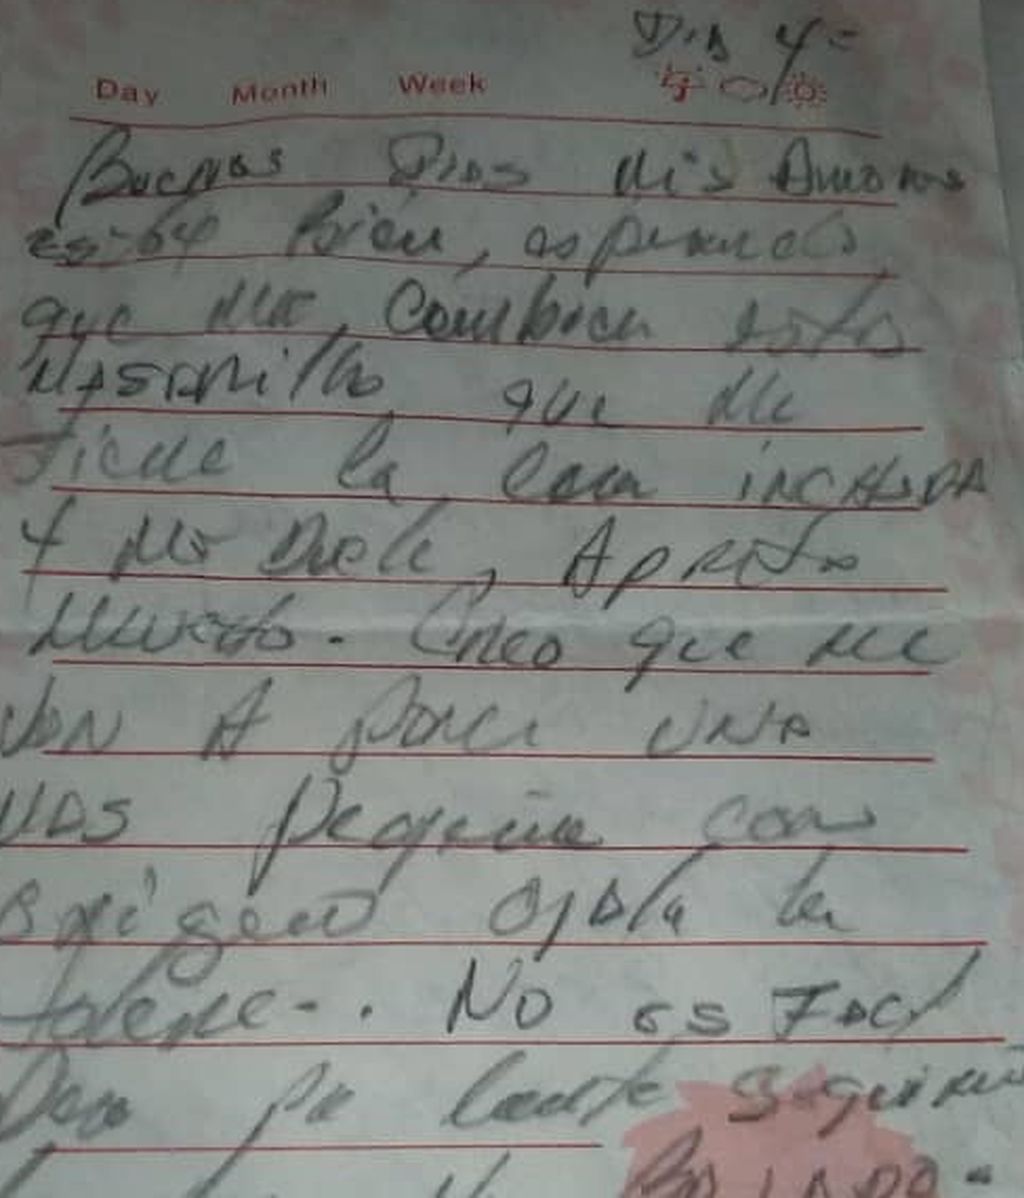 Dia 4=
Day Month Week
Buenas Dias Mis Amores
estoy bien, esperando
que me cambien esta
Mascarilla que me
tiene la cara incHADA
y me Duele, Aprieta
Mucho. Creo que me
VAN A poner UNA
MAS pequeña con
oxigeno ojala la
tolere-. No es FAcil
Pero pa lante seguimos